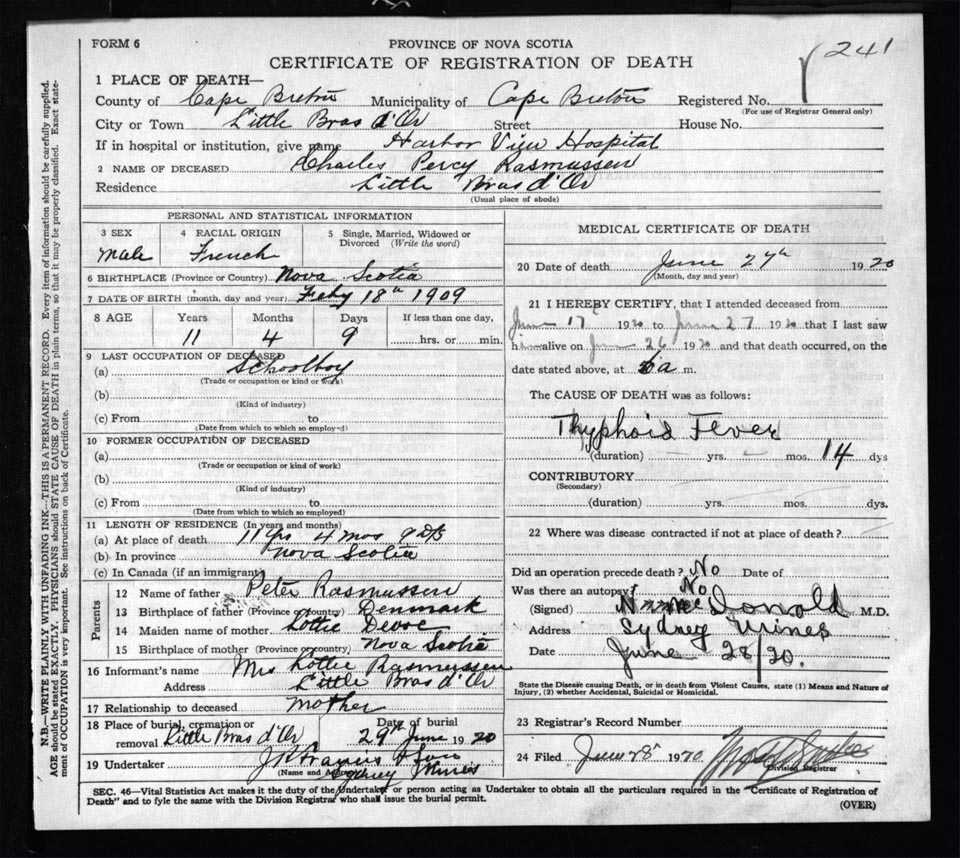 FORM 6
PROVINCE OF NOVA SCOTIA
241
CERTIFICATE OF REGISTRATION OF DEATH
1 PLACE OF DEATH—
County of Cape Breton Municipality of Cape Breton Registered No.
(For use of Registrar General only)
City or Town Little Bras d'Or Street House No.
If in hospital or institution, give name Harbor View Hospital
2 NAME OF DECEASED Charles Percy Rasmussen
Residence Little Bras d'Or
(Usual place of abode)
PERSONAL AND STATISTICAL INFORMATION
3 SEX 4 RACIAL ORIGIN 5 Single, Married, Widowed or
Divorced (Write the word)
Male French
6 BIRTHPLACE (Province or Country) Nova Scotia
7 DATE OF BIRTH (month, day and year) Feby 18th 1909
8 AGE Years Months Days If less than one day,
11 4 9 hrs. or min.
9 LAST OCCUPATION OF DECEASED
(a) Schoolboy
(Trade or occupation or kind or work)
(b)
(Kind of industry)
(c) From to
(Date from which to which so employed)
10 FORMER OCCUPATION OF DECEASED
(a)
(Trade or occupation or kind of work)
(b)
(Kind of industry)
(c) From to
(Date from which to which so employed)
11 LENGTH OF RESIDENCE (In years and months)
(a) At place of death 11 yrs 4 mos 9 Ds
(b) In province Nova Scotia
(c) In Canada (if an immigrant)
Parents
12 Name of father Peter Rasmussen
13 Birthplace of father (Province or country) Denmark
14 Maiden name of mother Lottie Devoe
15 Birthplace of mother (Province or country) Nova Scotia
16 Informant's name Mrs Lottie Rasmussen
Address Little Bras d'Or
17 Relationship to deceased mother
18 Place of burial, cremation or Date of burial
removal Little Bras d'Or 29th June 1920
19 Undertaker
(Name and Address) Sydney Mines
MEDICAL CERTIFICATE OF DEATH
20 Date of death June 27th 1920
(Month, day and year)
21 I HEREBY CERTIFY, that I attended deceased from
June 17 1920 to June 27 1920 that I last saw
him alive on June 26 1920 and that death occurred, on the
date stated above, at 6 a m.
The CAUSE OF DEATH was as follows:
Thyphoid Fever
(duration) — yrs. — mos. 14 dys
CONTRIBUTORY
(Secondary)
(duration) yrs. mos. dys.
22 Where was disease contracted if not at place of death?
Did an operation precede death? No Date of
Was there an autopsy? No
(Signed) Donald M.D.
Address Sydney Mines
Date June 28/20.
State the Disease causing Death, or in death from Violent Causes, state (1) Means and Nature of
Injury, (2) whether Accidental, Suicidal or Homicidal.
23 Registrar's Record Number
24 Filed June 28 1920
Division Registrar
SEC. 46—Vital Statistics Act makes it the duty of the Undertaker or person acting as Undertaker to obtain all the particulars required in the "Certificate of Registration of
Death" and to fyle the same with the Division Registrar who shall issue the burial permit.
(OVER)
N.B.—WRITE PLAINLY WITH UNFADING INK—THIS IS A PERMANENT RECORD. Every item of information should be carefully supplied.
AGE should be stated EXACTLY. PHYSICIANS should STATE CAUSE OF DEATH in plain terms, so that it may be properly classified. Exact state-
ment of OCCUPATION is very important. See instructions on back of Certificate.